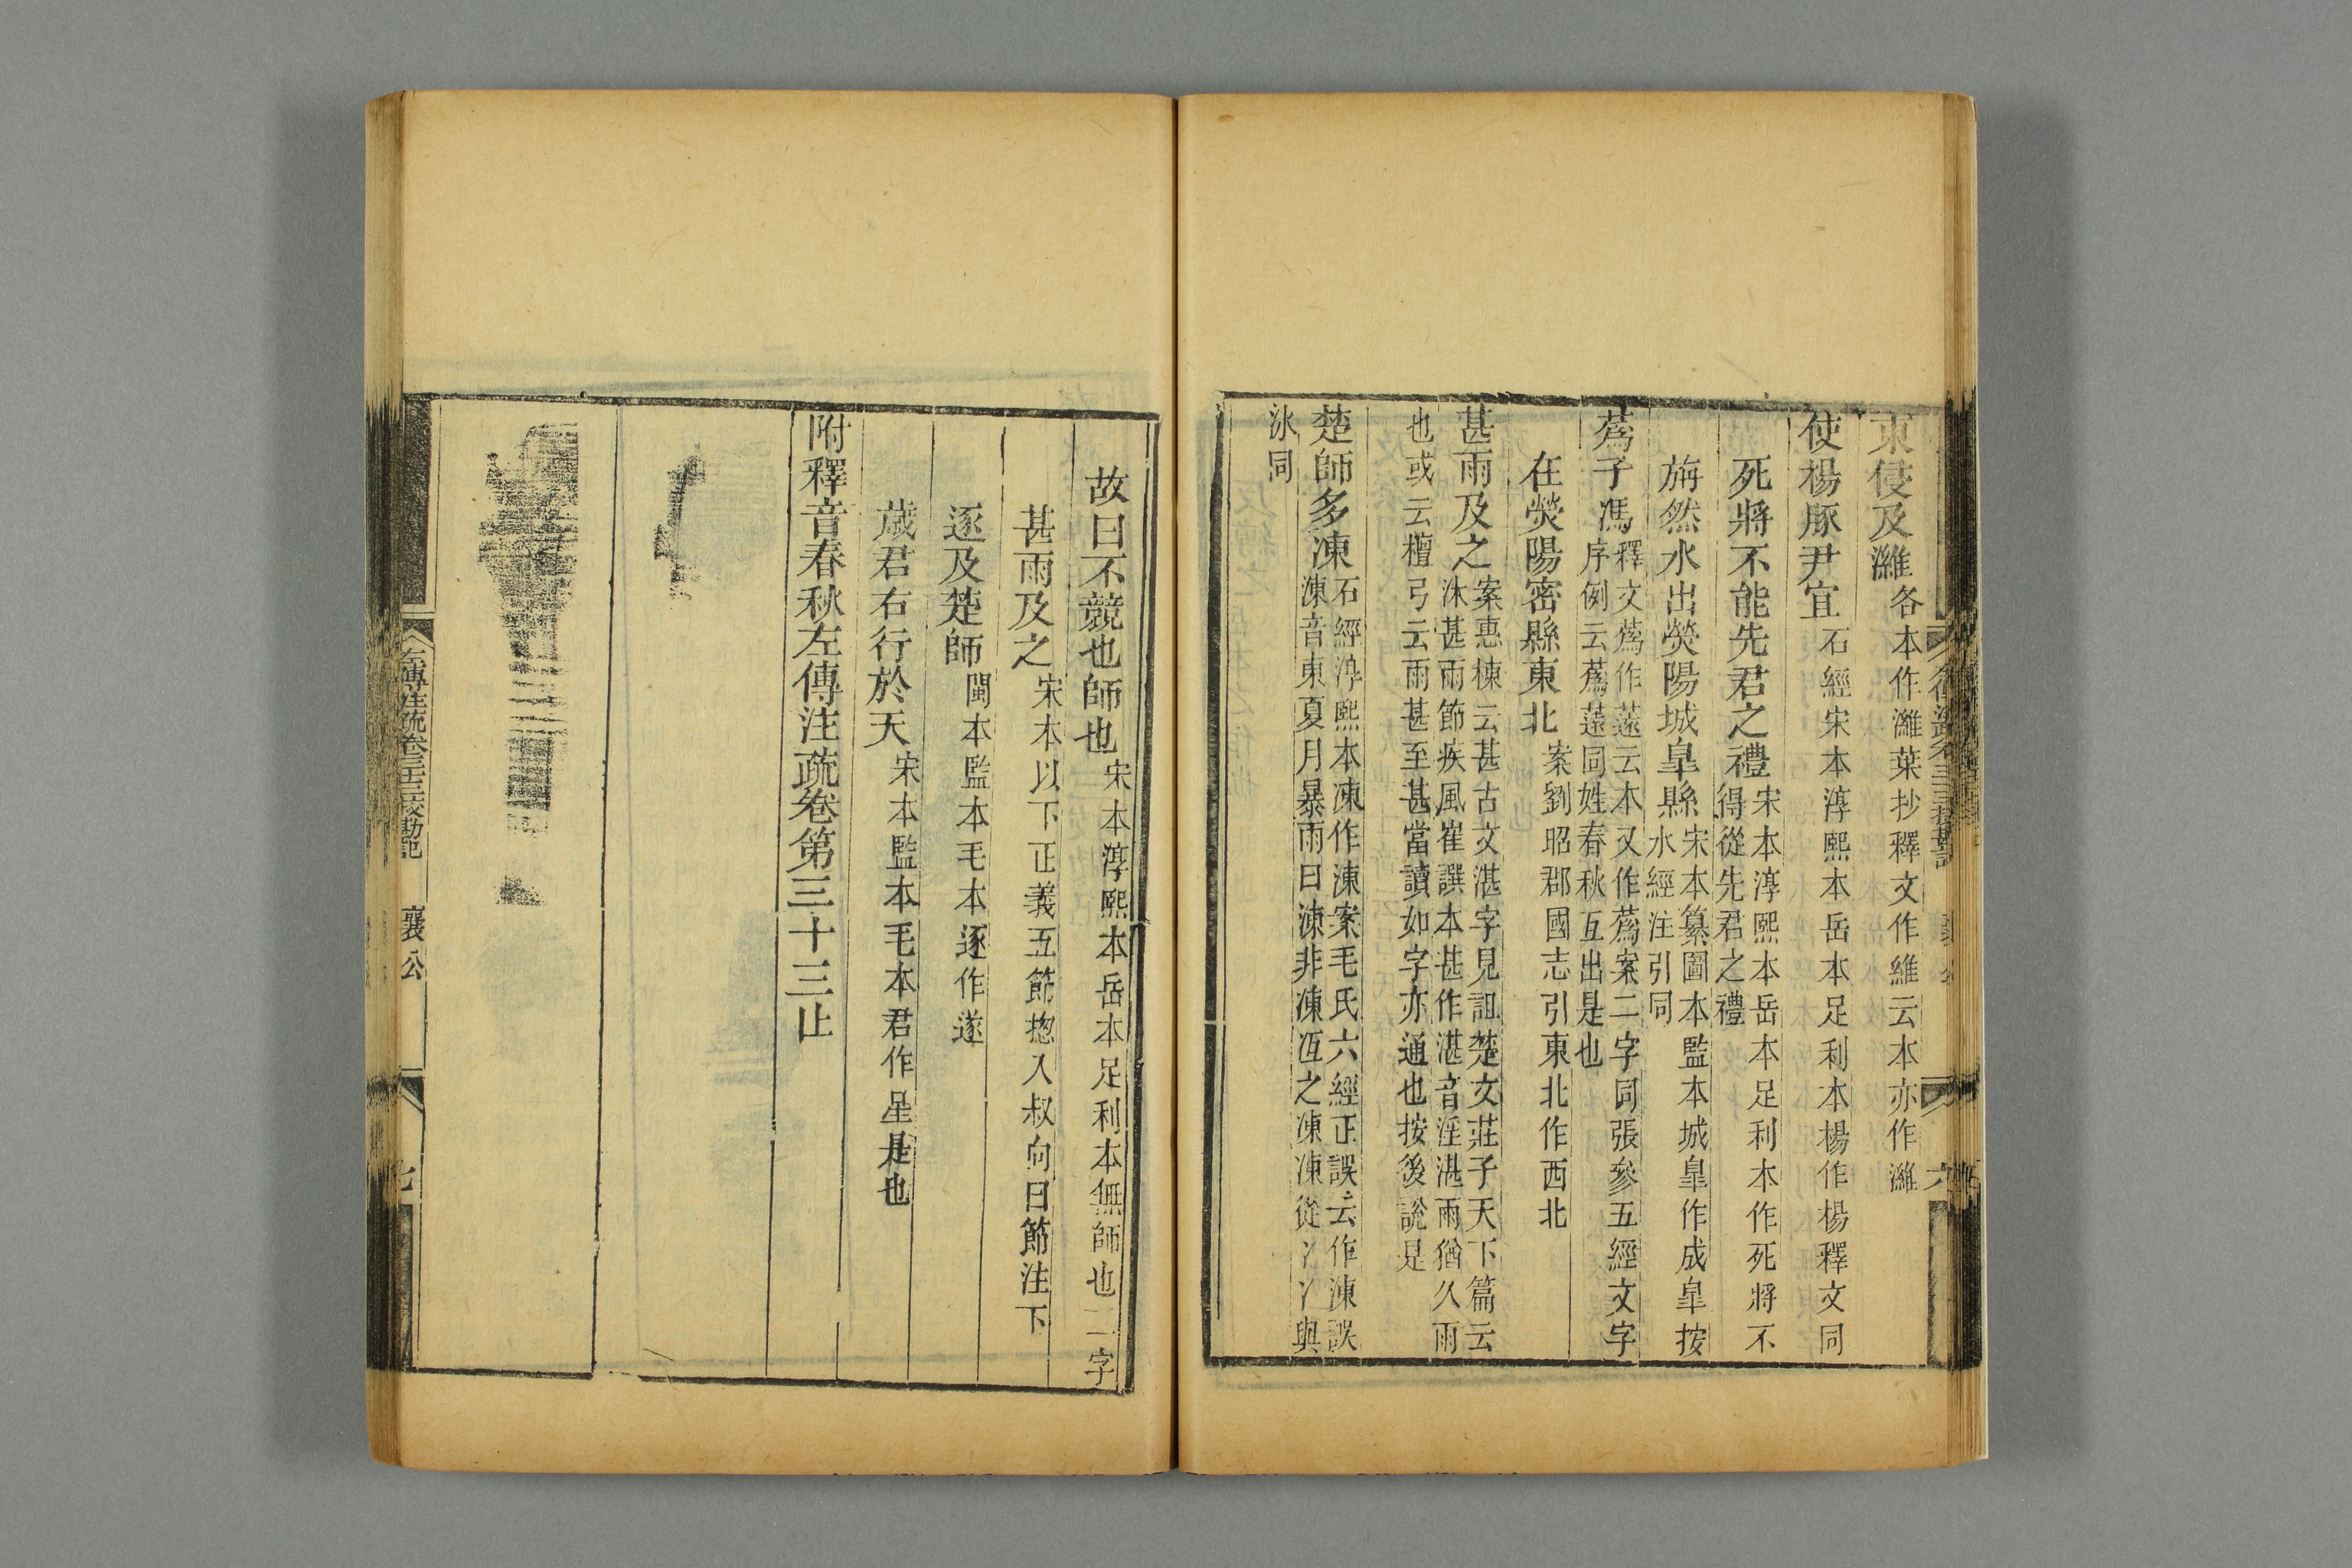 東侵及濰各本作濰葉抄釋文作維云本亦作濰
使楊豚尹宜石經宋本淳熙本岳本足利本楊作楊釋文同
死將不能先君之禮宋本淳熙本岳本足利本作死將不
得從先君之禮
旃然水出熒陽城臯縣宋本纂圖本監本城臯作成臯按
水經注引同
蒍子馮釋文蒍作薳云本又作蒍案二字同張參五經文字
序例云蒍薳同姓春秋互出是也
在熒陽密縣東北案劉昭郡國志引東北作西北
甚雨及之案惠棟云甚古文湛字見詛楚文莊子天下篇云
沐甚雨節疾風崔譔本甚作湛音淫湛雨猶久雨
也或云檀弓云雨甚至甚當讀如字亦通也按後說是
楚師多凍石經淳熙本凍作涷案毛氏六經正誤云作涷誤
涷音東夏月暴雨曰涷非凍冱之凍凍從冫冫與
冰同
左傳注疏卷三十三校勘記 襄公 六
故曰不競也師也宋本淳熙本岳本足利本無師也二字
甚雨及之宋本以下正義五節摠入叔向曰節注下
逐及楚師閩本監本毛本逐作遂
歲君右行於天宋本監本毛本君作星是也
附釋音春秋左傳注疏卷第三十三止
左傳注疏卷三十三校勘記 襄公 七